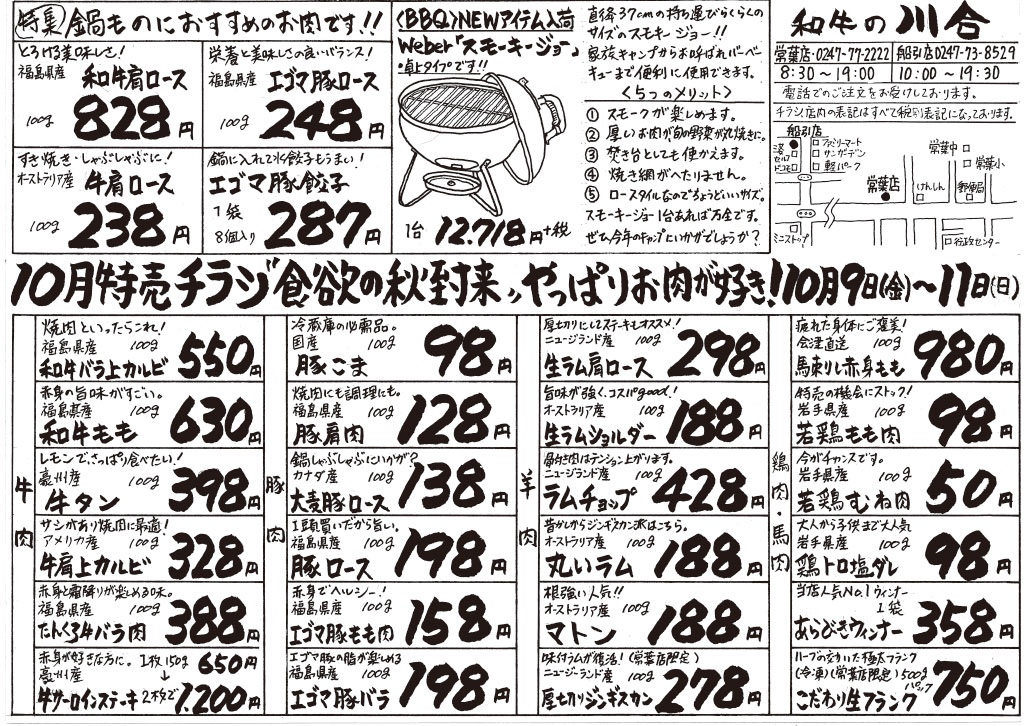 特集 鍋ものにおすすめのお肉です!!
とろける美味しさ!
福島県産 和牛肩ロース
100g 828円
栄養と美味しさの良いバランス!
福島県産 エゴマ豚ロース
100g 248円
すき焼き・しゃぶしゃぶに!
オーストラリア産 牛肩ロース
100g 238円
鍋に入れて水餃子もうまい!
エゴマ豚餃子
1袋
8個入り 287円
〈BBQ〉NEWアイテム入荷
Weber「スモーキージョー」
・卓上タイプです!!
1台 12.718円+税
直径37cmの持ち運びらくらくの
サイズのスモーキージョー!!
家族キャンプからお呼ばれバーベ
キューまで便利に使用できます。
〈5つのメリット〉
① スモークが楽しめます。
② 厚いお肉が、旬の野菜が丸焼きに。
③ 焚き台としても使かえます。
④ 焼き網がへたりません。
⑤ ロースタイルなのでちょうどいいサイズ。
スモーキージョー1台あれば万全です。
ぜひ今年のキャンプにいかがでしょうか?
和牛の川合
常葉店:0247-77-2222 船引店0247-73-8529
8:30〜19:00 10:00〜19:30
電話でのご注文をお受けしております。
チラシ店内の表記はすべて税別表記になっております。
船引店
ファミリーマート
サンガーデン
軽パーク
ドコモ
ミニストップ
常葉店
常葉中
常葉小
けんしん
郵便局
行政センター
10月特売チラシ 食欲の秋到来〃やっぱりお肉が好き!10月9日(金)〜11日(日)
牛肉
焼肉といったらこれ!
福島県産 100g
和牛バラ上カルビ 550円
赤身の旨味がすごい。
福島県産 100g
和牛もも 630円
レモンで、さっぱり食べたい!
豪州産 100g
牛タン 398円
サシがあり焼肉に最適!
アメリカ産 100g
牛肩上カルビ 328円
赤身と霜降りが楽しめる味。
福島県産 100g
たんくろ牛バラ肉 388円
赤身が好きな方に。 1枚150g 650円
豪州産 ↓
牛サーロインステーキ 2枚で 1.200円
豚肉
冷蔵庫の必需品。
国産 100g
豚こま 98円
焼肉にも調理にも。
福島県産 100g
豚肩肉 128円
鍋しゃぶしゃぶにいかが?
カナダ産 100g
大麦豚ロース 138円
1頭買いだから旨い。
福島県産 100g
豚ロース 198円
赤身でヘルシー!
福島県産 100g
エゴマ豚もも肉 158円
エゴマ豚の脂が楽しめる
福島県産 100g
エゴマ豚バラ 198円
羊肉
厚切りにしてステーキもオススメ!
ニュージーランド産 100g
生ラム肩ロース 298円
旨味が強く、コスパgood!
オーストラリア産 100g
生ラムショルダー 188円
骨付き肉はテンション上がります。
ニュージーランド産 100g
ラムチョップ 428円
昔からジンギスカン派はこちら。
オーストラリア産 100g
丸いラム 188円
根強い人気!!
オーストラリア産 100g
マトン 188円
味付ラムが復活!(常葉店限定)
ニュージーランド産 100g
厚切りジンギスカン 278円
鶏肉・馬肉
疲れた身体にご褒美!
会津直送 100g
馬刺し赤身もも 980円
特売の機会にストック!
岩手県産 100g
若鶏もも肉 98円
今がチャンスです。
岩手県産 100g
若鶏むね肉 50円
大人から子供まで大人気
岩手県産 100g
鶏トロ塩ダレ 98円
当店人気No.1ウィンナー
1袋
あらびきウィンナー 358円
ハーブのきいた極太フランク
(冷凍)(常葉店限定) 500gパック
こだわり生フランク 750円